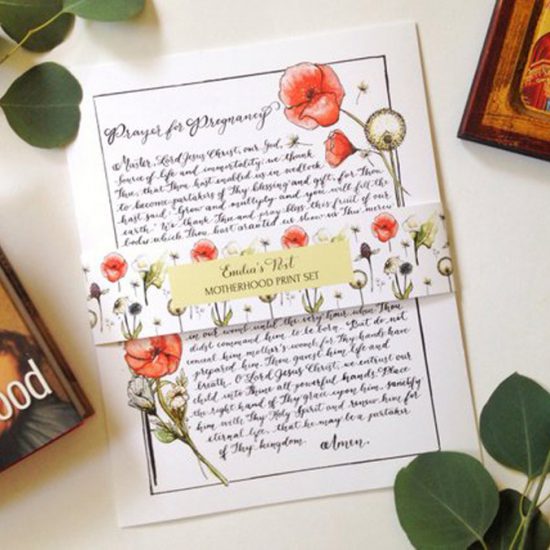 Prayer for Pregnancy
Master, Lord Jesus Christ, our God,
Source of life and immortality: we thank
Thee, that Thou hast enabled us in wedlock
to become partakers of Thy blessing and gift, for Thou
hast said "Grow and multiply and you will fill the
earth." We thank Thee and pray, bless this fruit of our
which Thou hast granted us
Emilia's Post
MOTHERHOOD PRINT SET
in our womb until the very hour when Thou
didst command him to be born. But do not
conceal him mother's womb, for Thy hands have
prepared him. Thou gavest him life and
breath. O Lord Jesus Christ, we entrust our
child into Thine all powerful hands. Place
the right hand of Thy grace upon him, sanctify
him with Thy Holy Spirit and renew him for
eternal life, that he may be a partaker
of Thy kingdom. Amen.
ood